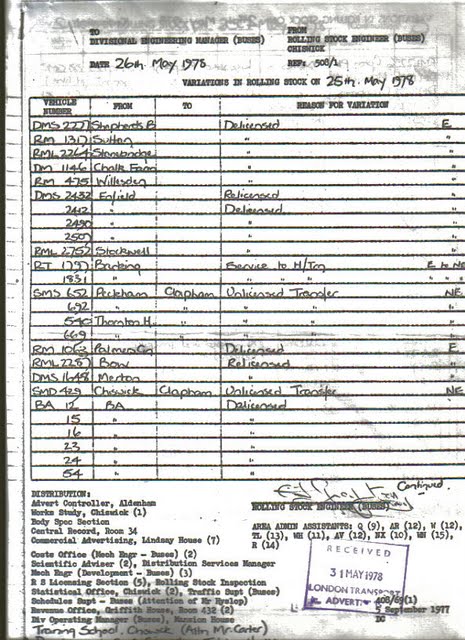 TO
FROM
DIVISIONAL ENGINEERING MANAGER (BUSES)
ROLLING STOCK ENGINEER (BUSES)
CHISWICK
DATE 26th May 1978
REF: 508/1
VARIATIONS IN ROLLING STOCK ON 25th May 1978
VEHICLE NUMBER FROM TO REASON FOR VARIATION
DMS 2277 Shepherds B Delicensed E
RM 1317 Sutton " "
RML 2264 Stonebridge " "
DM 1146 Chalk Farm " "
RM 475 Willesden " "
DMS 2432 Enfield Relicensed "
2442 " Delicensed "
2490 " " "
2507 " " "
RML 2752 Stockwell " "
RT 1797 Barking Service to H/Trg E to NE
1831 " " " " " " "
SMS 652 Peckham Clapham Unlicensed Transfer NE
692 " " " " "
540 Thornton H. " " " "
669 " " " " "
RM 1063 Palmers Gn Delicensed E
RML 2257 Bow Relicensed "
DMS 1648 Merton " "
SMD 429 Chiswick Clapham Unlicensed Transfer NE
BA 12 BA Delicensed E
15 " " "
16 " " "
23 " " "
24 " " "
54 " " "
Continued.
ROLLING STOCK ENGINEER (BUSES)
DISTRIBUTION:
Advert Controller, Aldenham
Works Study, Chiswick (1)
Body Spec Section
Central Record, Room 34
Commercial Advertising, Lindsay House (7)
Costs Office (Mech Engr - Buses) (2)
Scientific Adviser (2), Distribution Services Manager
Mech Engr (Development - Buses) (3)
R S Licensing Section (5), Rolling Stock Inspection
Statistical Office, Chiswick (2), Traffic Supt (Buses)
Schedules Supt - Buses (Attention of Mr Hyslop)
Revenue Office, Griffith House, Room 432 (2)
Div Operating Manager (Buses), Mansion House
Training School, Chiswick (Attn Mr. Carter)
AREA ADMIN ASSISTANTS: Q (9), AR (12), W (12),
TL (13), WH (11), AV (12), NX (10), WN (15),
R (14)
RECEIVED
31 MAY 1978
LONDON TRANSPORT
ADVERT
408/69(1)
5 September 1977
DC